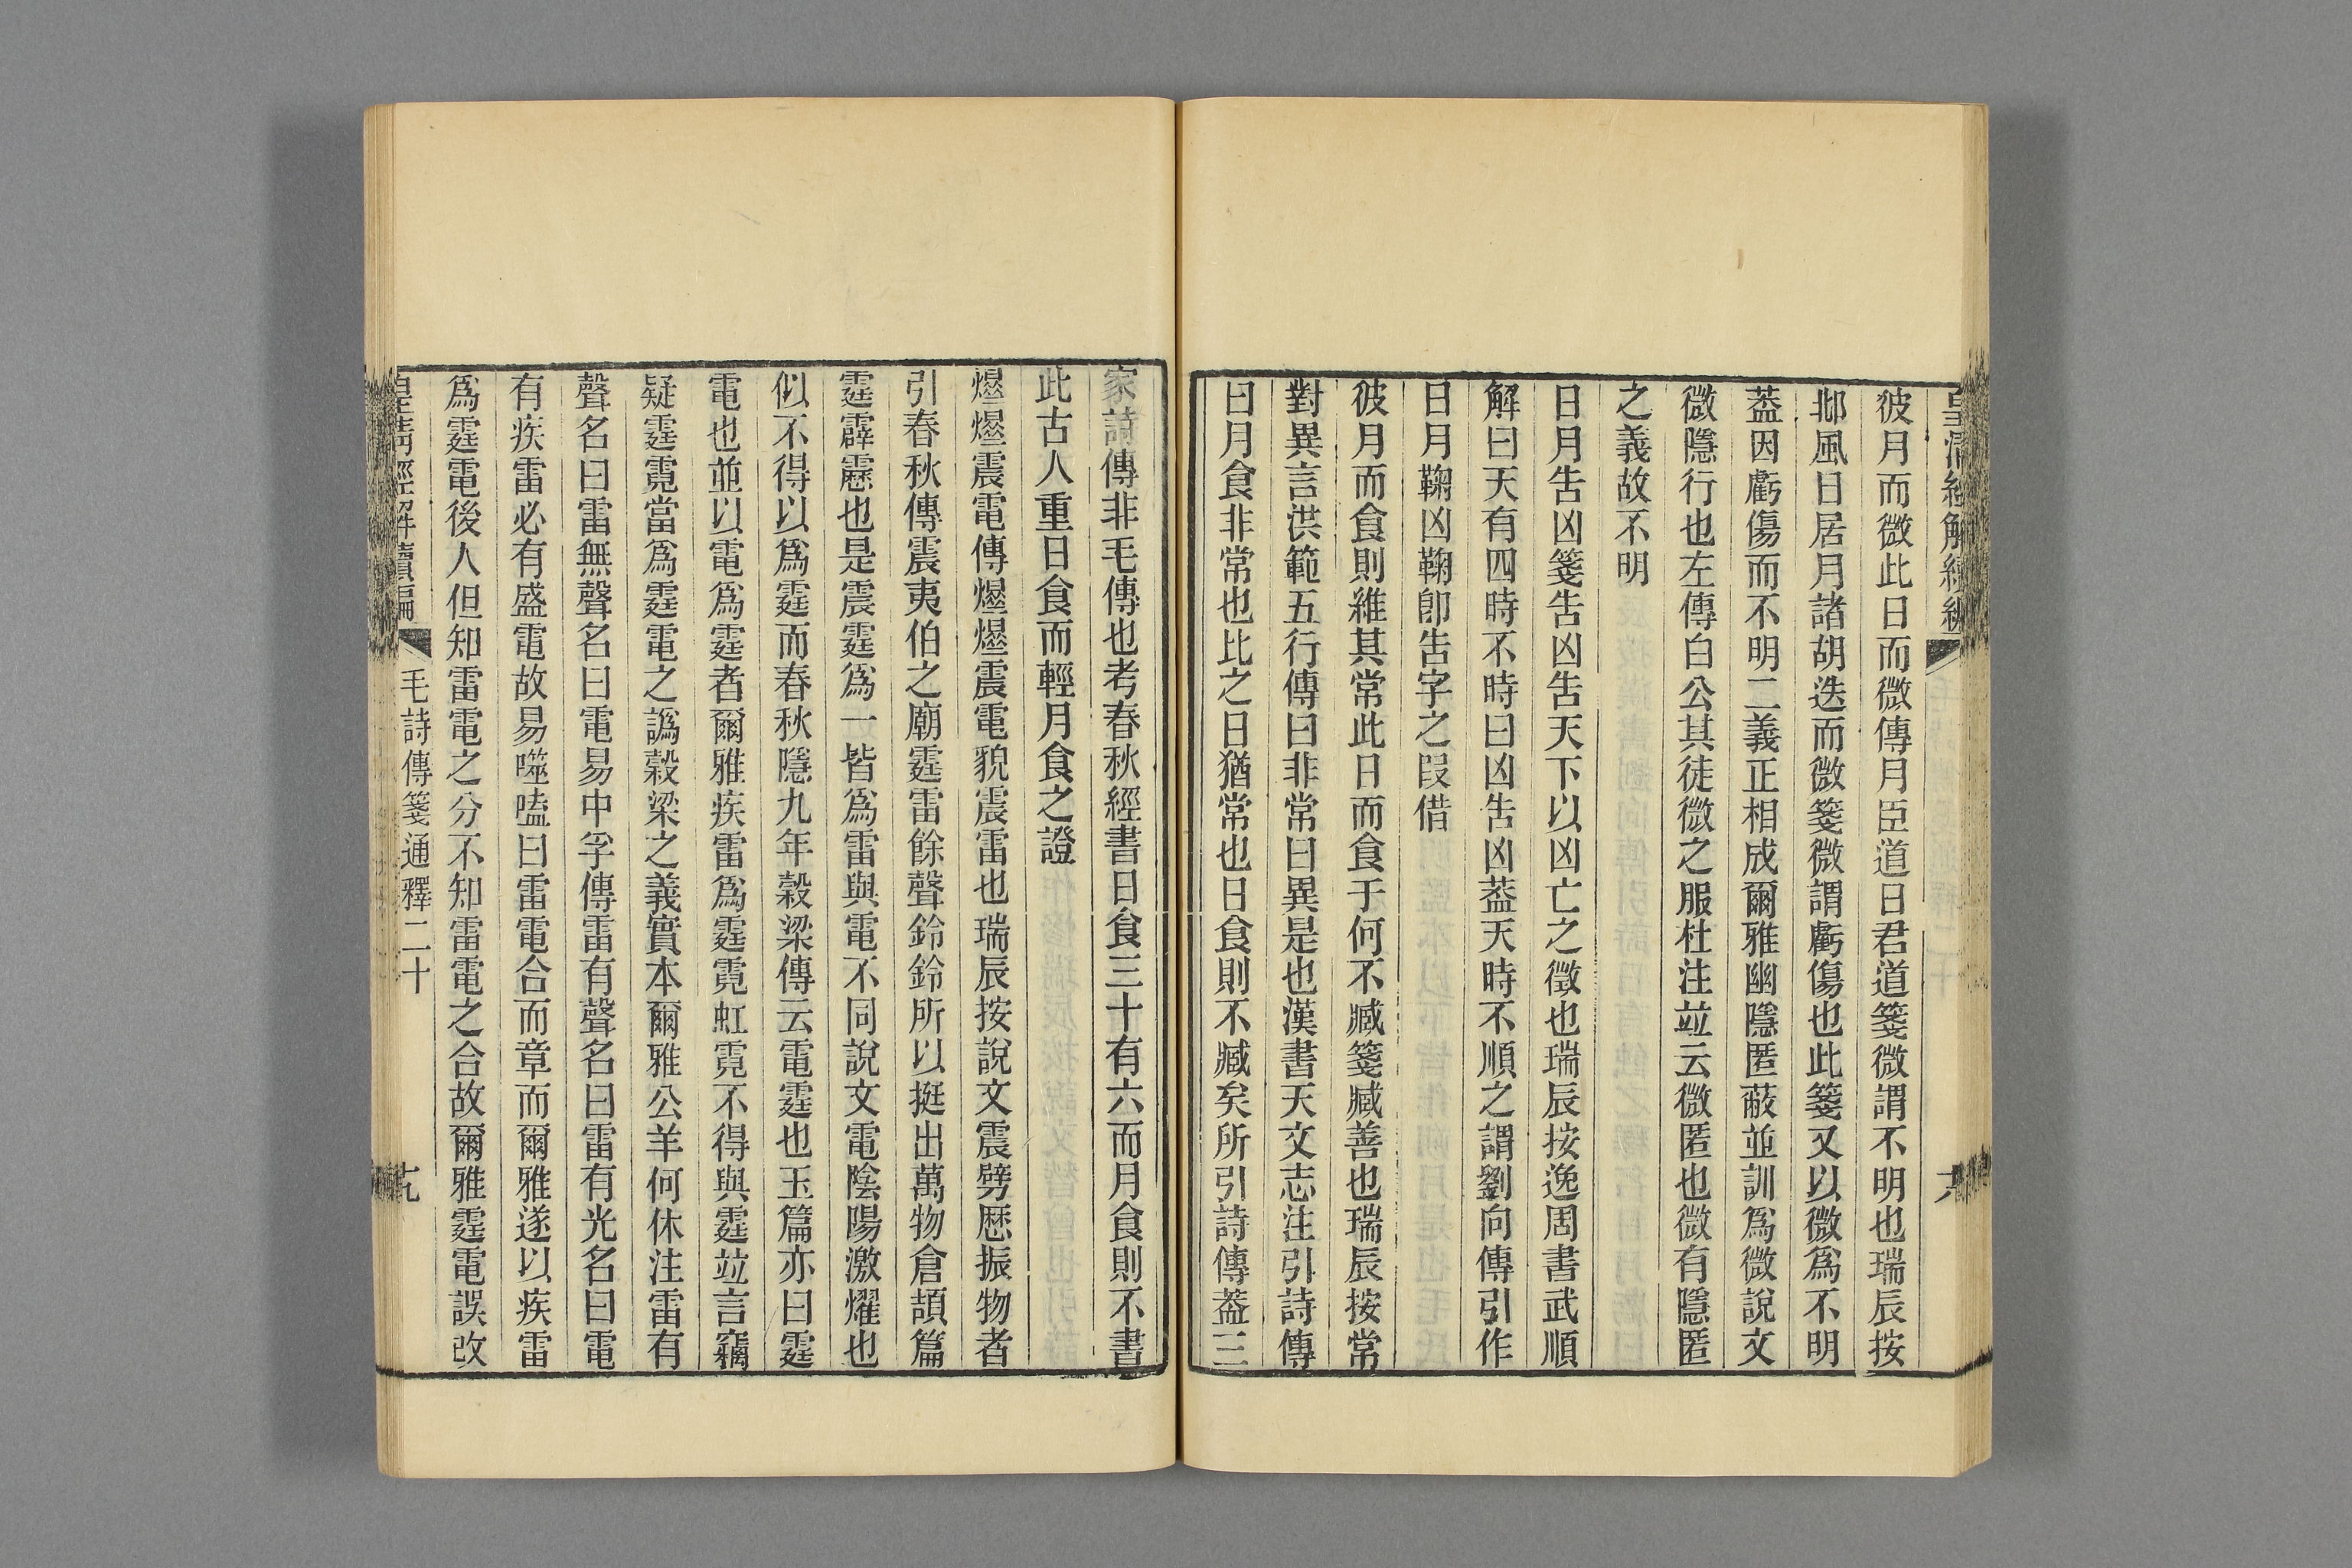 彼月而微此日而微傳月臣道日君道箋微謂不明也瑞辰按
邶風日居月諸胡迭而微箋微謂虧傷也此箋又以微爲不明
葢因虧傷而不明二義正相成爾雅幽隱匿蔽並訓爲微說文
微隱行也左傳白公其徒微之服杜注竝云微匿也微有隱匿
之義故不明
日月告凶箋告凶告天下以凶亡之徵也瑞辰按逸周書武順
解曰天有四時不時曰凶告凶葢天時不順之謂劉向傳引作
日月鞠凶鞠卽告字之叚借
彼月而食則維其常此日而食于何不臧箋臧善也瑞辰按常
對異言洪範五行傳曰非常曰異是也漢書天文志注引詩傳
曰月食非常也比之日猶常也日食則不臧矣所引詩傳葢三
家詩傳非毛傳也考春秋經書日食三十有六而月食則不書
此古人重日食而輕月食之證
爗爗震電傳爗爗震電貌震雷也瑞辰按說文震劈歷振物者
引春秋傳震夷伯之廟霆雷餘聲鈴鈴所以挺出萬物倉頡篇
霆霹靂也是震霆爲一皆爲雷與電不同說文電陰陽激燿也
似不得以爲霆而春秋隱九年榖梁傳云電霆也玉篇亦曰霆
電也並以電爲霆者爾雅疾雷爲霆霓虹霓不得與霆竝言竊
疑霆霓當爲霆電之譌榖梁之義實本爾雅公羊何休注雷有
聲名曰雷無聲名曰電易中孚傳雷有聲名曰雷有光名曰電
有疾雷必有盛電故易噬嗑曰雷電合而章而爾雅遂以疾雷
爲霆電後人但知雷電之分不知雷電之合故爾雅霆電誤改
皇清經解續編
毛詩傳箋通釋二十